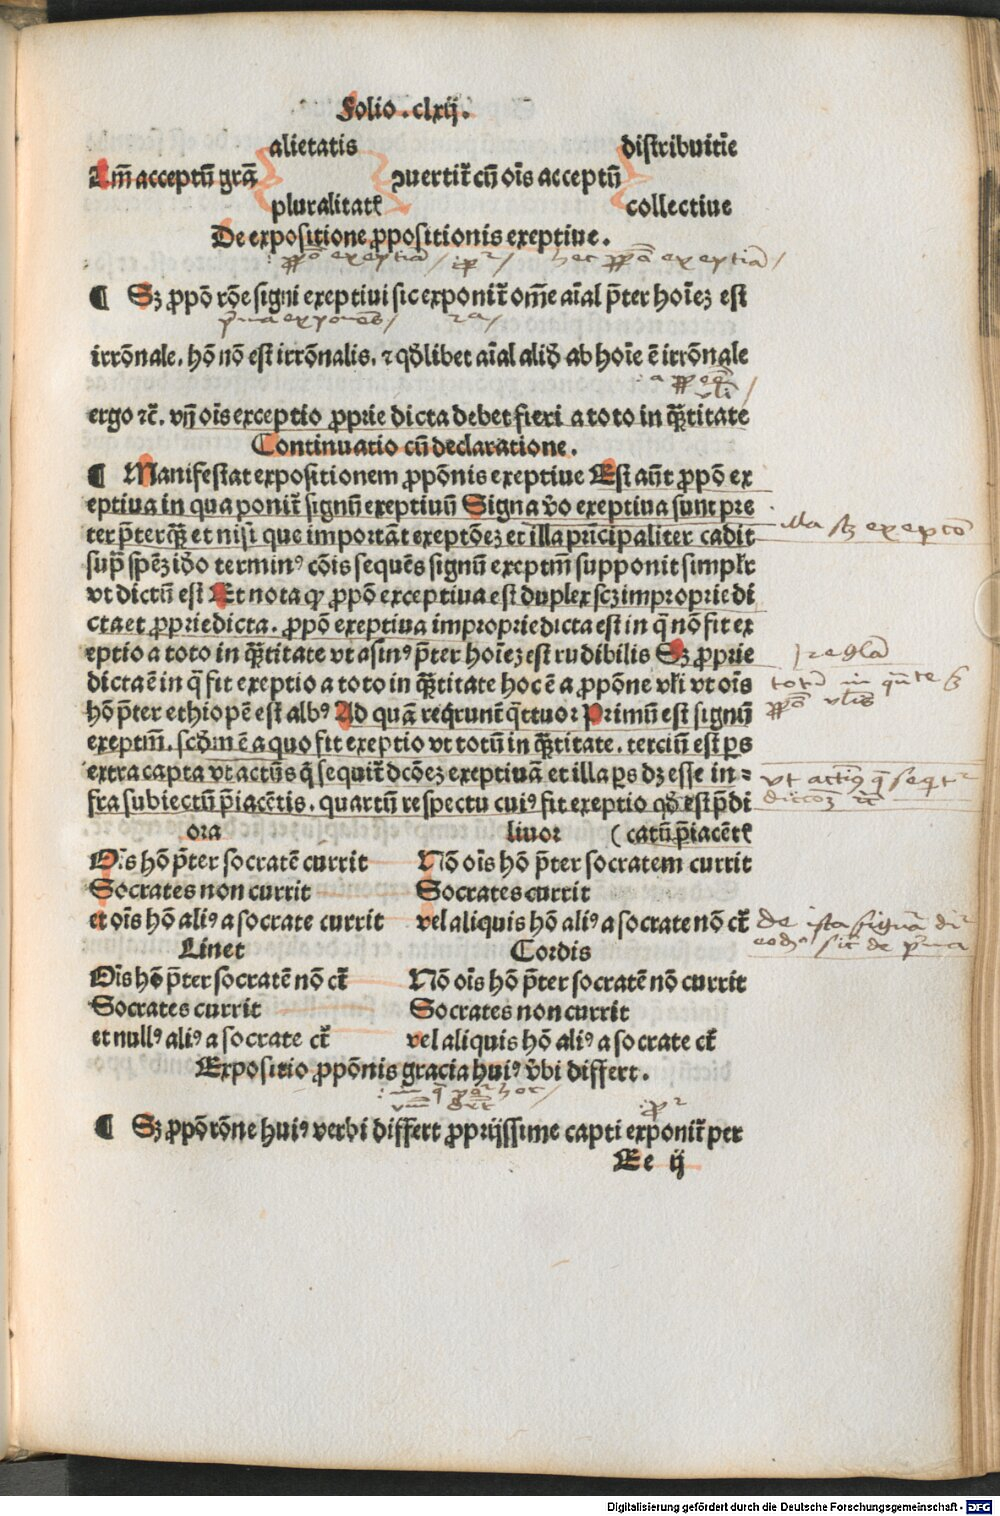 Folio . clxij .
alietatis distribuitīe
Am̄ acceptū grā ↄuertit̄ cū oīs acceptū
pluralitatꝭ collectiue
De expositione ꝓpositionis exeptiue .
ꝓpō exeptiā hec ꝓpō exeptiā
¶ Sꝫ ꝓpō rōe signi exeptiui sic exponit̄ om̄e aīal p̄ter hoīeꝫ est
p̄ma exponēs 2a
irrōnale . hō nō est irrōnalis . ⁊ qd̄libet aīal aliđ ab hoīe ē irrōnale
ergo ⁊c̄ . vn̄ oīs exceptio ꝓprie dicta debet fieri a toto in qͣ̄titate
Continuatio cū declaratione .
¶ Manifestat expositionem ꝓpōnis exeptiue Est aūt ꝓpō ex
eptiua in qua ponit̄ signū exeptiuū Signa v̄o exeptiua sunt pre
ter p̄terqͣ̄ et nisi que importāt exeptōeꝫ et illa prīcipaliter cadit
illa sꝫ exeptō
sup̄ spēꝫ iđo terminꝰ cōis sequēs signū exceptm̄ supponit simpłr
vt dictū est Et nota ꝙ ꝓpō exceptiua est duplex scꝫ improprie di
cta et ꝓprie dicta . ꝓpō exeptiua improprie dicta est in q̄ nō fit ex
eptio a toto in qͣ̄titate vt asinꝰ p̄ter hoīeꝫ est rudibilis Sꝫ ꝓprie
regla
dicta ē in q̄ fit exeptio a toto in qͣ̄titate hoc ē a ꝓpōne vłi vt oīs
totū in qͣ̄te
hō p̄ter ethiopē est albꝰ Ad quā reqrunt̄ qͣ̄ttuor Primū est signū
ꝓpō vlis
exeptm̄ . scđm ē a quo fit exeptio vt totū in qͣ̄titate . terciū est p̄s
extra capta vt actūs q̄ sequit̄ dcōeꝫ exeptiuā et illa p̄s dꝫ esse in=
vt actūs q̄ seqͥt̄
fra subiectū p̄iacētis . quartū respectu cuiꝰ fit exeptio qđ est p̄di
dictōeꝫ ⁊c̄
ora liuor ( catū p̄iacētꝭ
Oīs hō p̄ter socratē currit Nō oīs hō p̄ter socratem currit
Socrates non currit Socrates currit
et oīs hō aliꝰ a socrate currit vel aliquis hō aliꝰ a socrate nō ct̄
de ista signa di
Linet Cordis
eodē sit de p̄ma
Oīs hō p̄ter socratē nō ct̄ Nō oīs hō p̄ter socratē nō currit
Socrates currit Socrates non currit
et nullꝰ aliꝰ a socrate ct̄ vel aliquis hō aliꝰ a socrate ct̄
Expositio ꝓpōnis gracia huiꝰ v̄bi differt .
¶ Sꝫ ꝓpō rōne huiꝰ verbi differt ꝓprijssime capti exponit̄ per
Ee ij
Digitalisierung gefördert durch die Deutsche Forschungsgemeinschaft - DFG